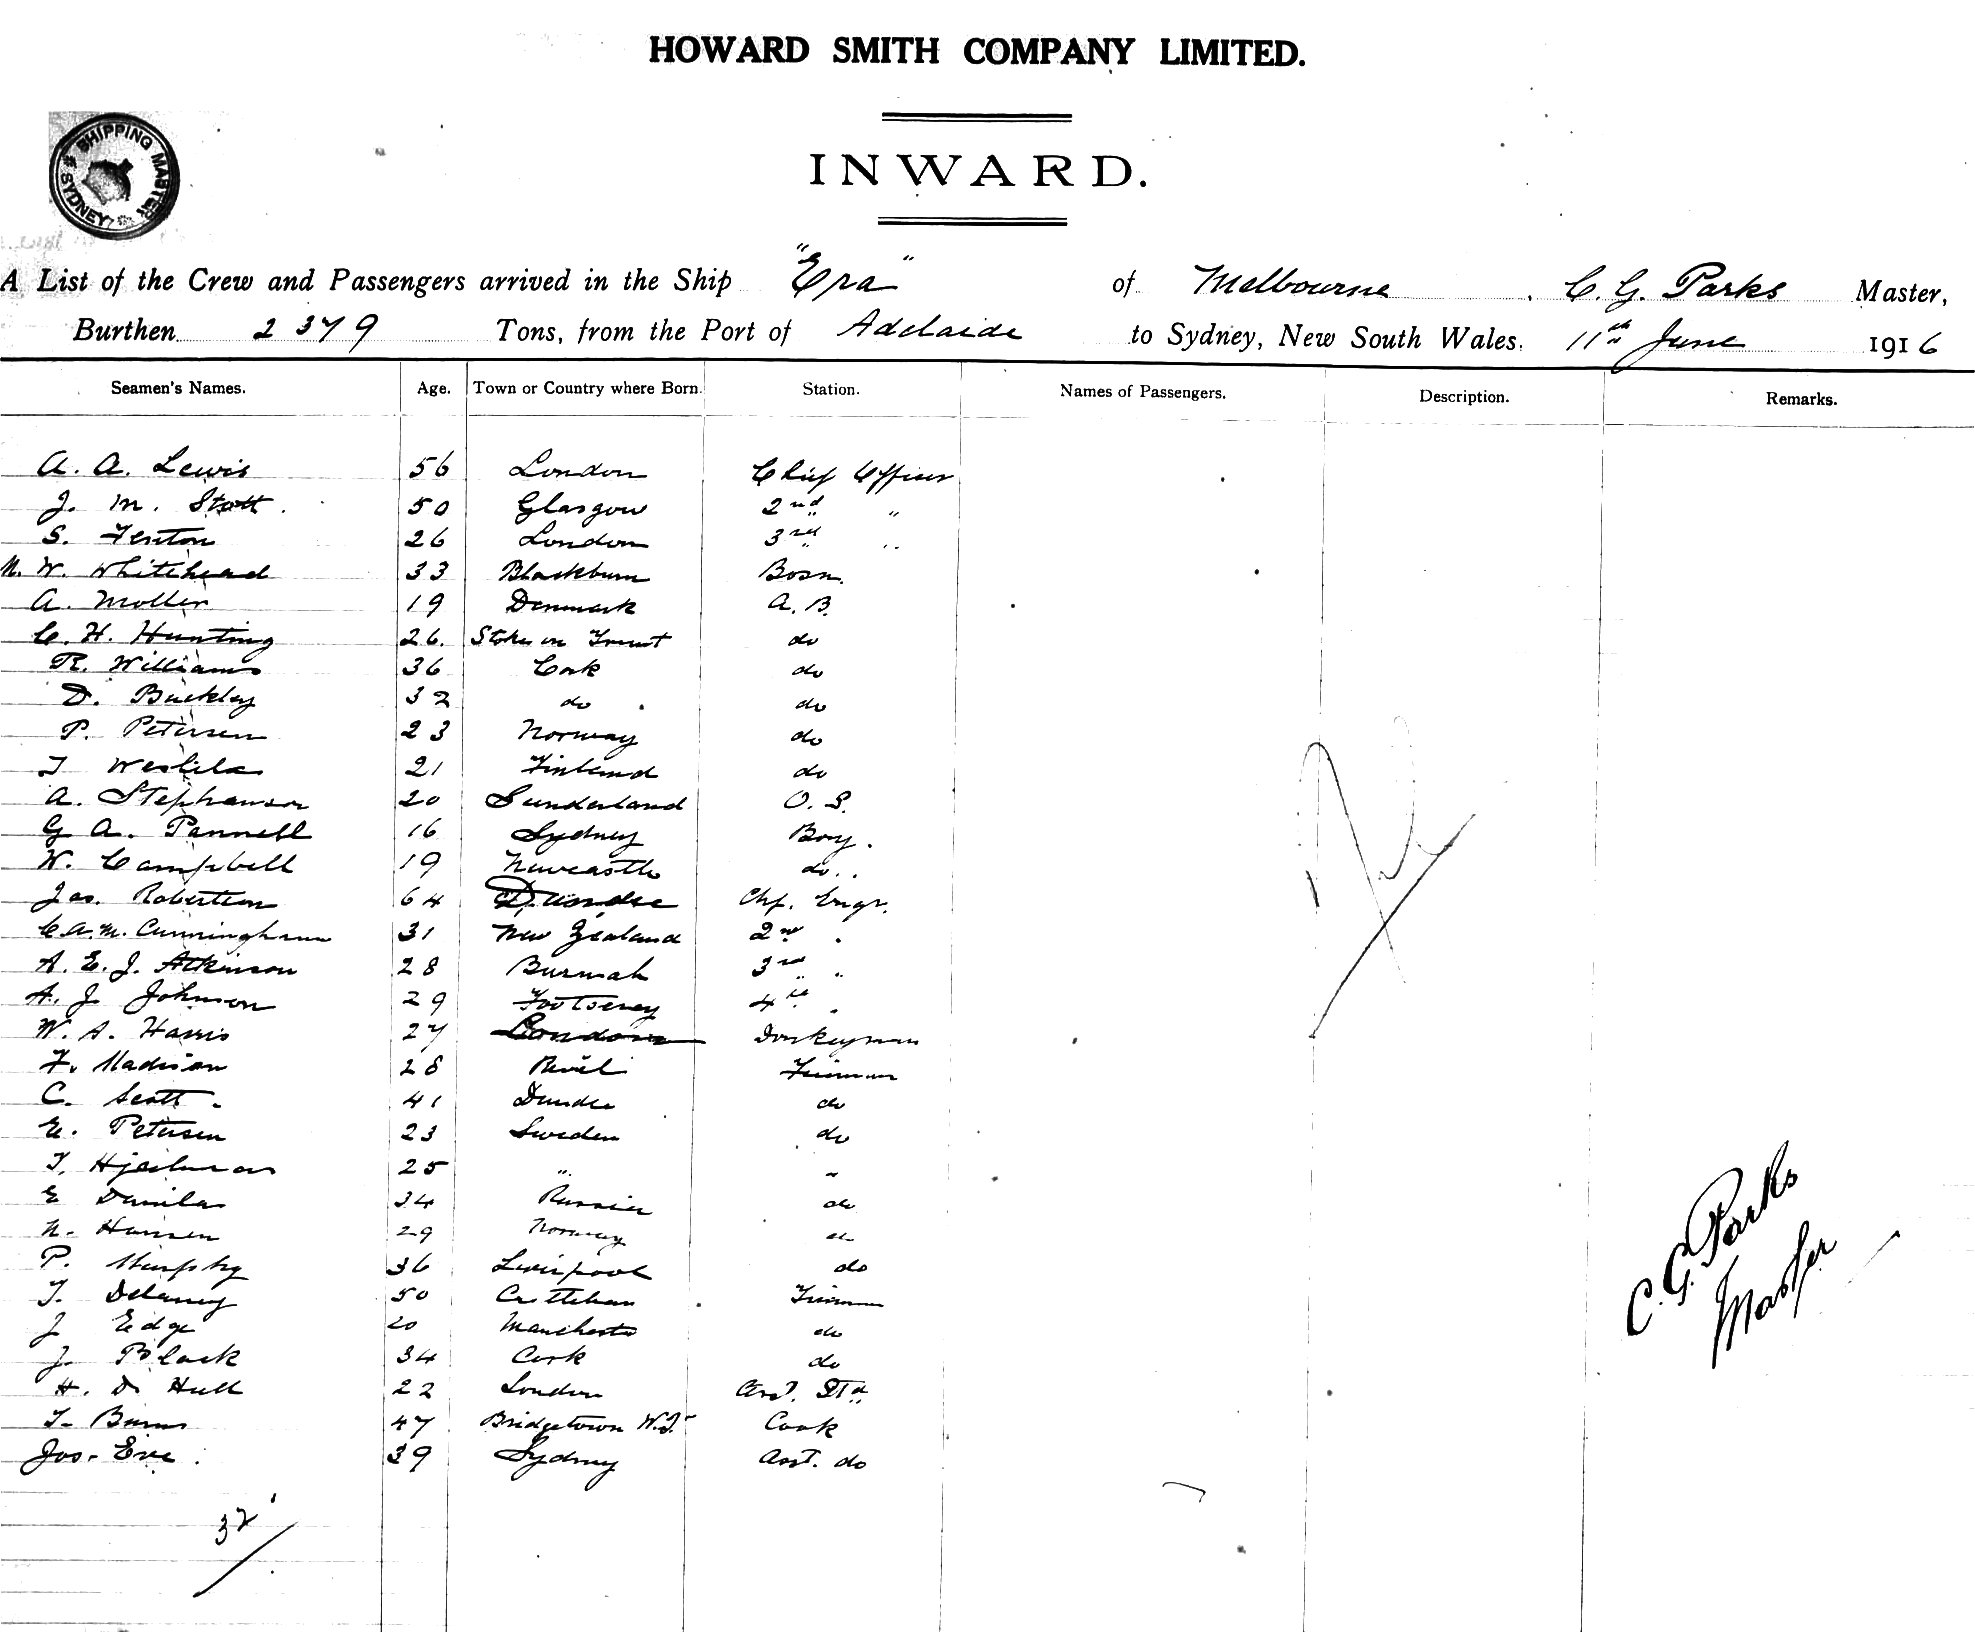 HOWARD SMITH COMPANY LIMITED.
SHIPPING MASTER SYDNEY
INWARD.
A List of the Crew and Passengers arrived in the Ship "Era" of Melbourne, C. G. Parks Master,
Burthen 2379 Tons, from the Port of Adelaide to Sydney, New South Wales. 11th June 1916
Seamen's Names. Age. Town or Country where Born. Station. Names of Passengers. Description. Remarks.
A. A. Lewis 56 London Chief Officer
J. M. Stott 50 Glasgow 2nd "
S. Fenton 26 London 3rd "
N. W. Whitehead 33 Blackburn Bosn.
A. Moller 19 Denmark A. B.
C. H. Hunting 26. Stoke on Trent do
R. Williams 36 Cork do
D. Buckley 32 do do
P. Petersen 23 Norway do
21 Finland do
A. Stephenson 20 Sunderland O. S.
G A. Pannell 16 Sydney Boy.
W. Campbell 19 Newcastle do.
Jas. Robertson 64 Dundee Chf. Engr.
C. A. M. Cunningham 31 New Zealand 2nd "
A. E. J. Atkinson 28 Burmah 3rd "
A. J. Johnson 29 Footscray 4th "
W. A. Harris 27 London Donkeyman
F. Madison 28 Revel Fireman
C. Scott 41 Dundee do
E. Petersen 23 Sweden do
25 " "
E 34 Russia do
N. Hansen 29 Norway do
P. Murphy 36 Liverpool do
T. Delaney 50 Fireman
J Edge 20 Manchester do
J. Black 34 Cork do
H. D. Hull 22 London Std
T. Burns 47 Bridgetown W.I. Cook
Jos. Eve 39 Sydney Asst. do
32
C. G. Parks
Master